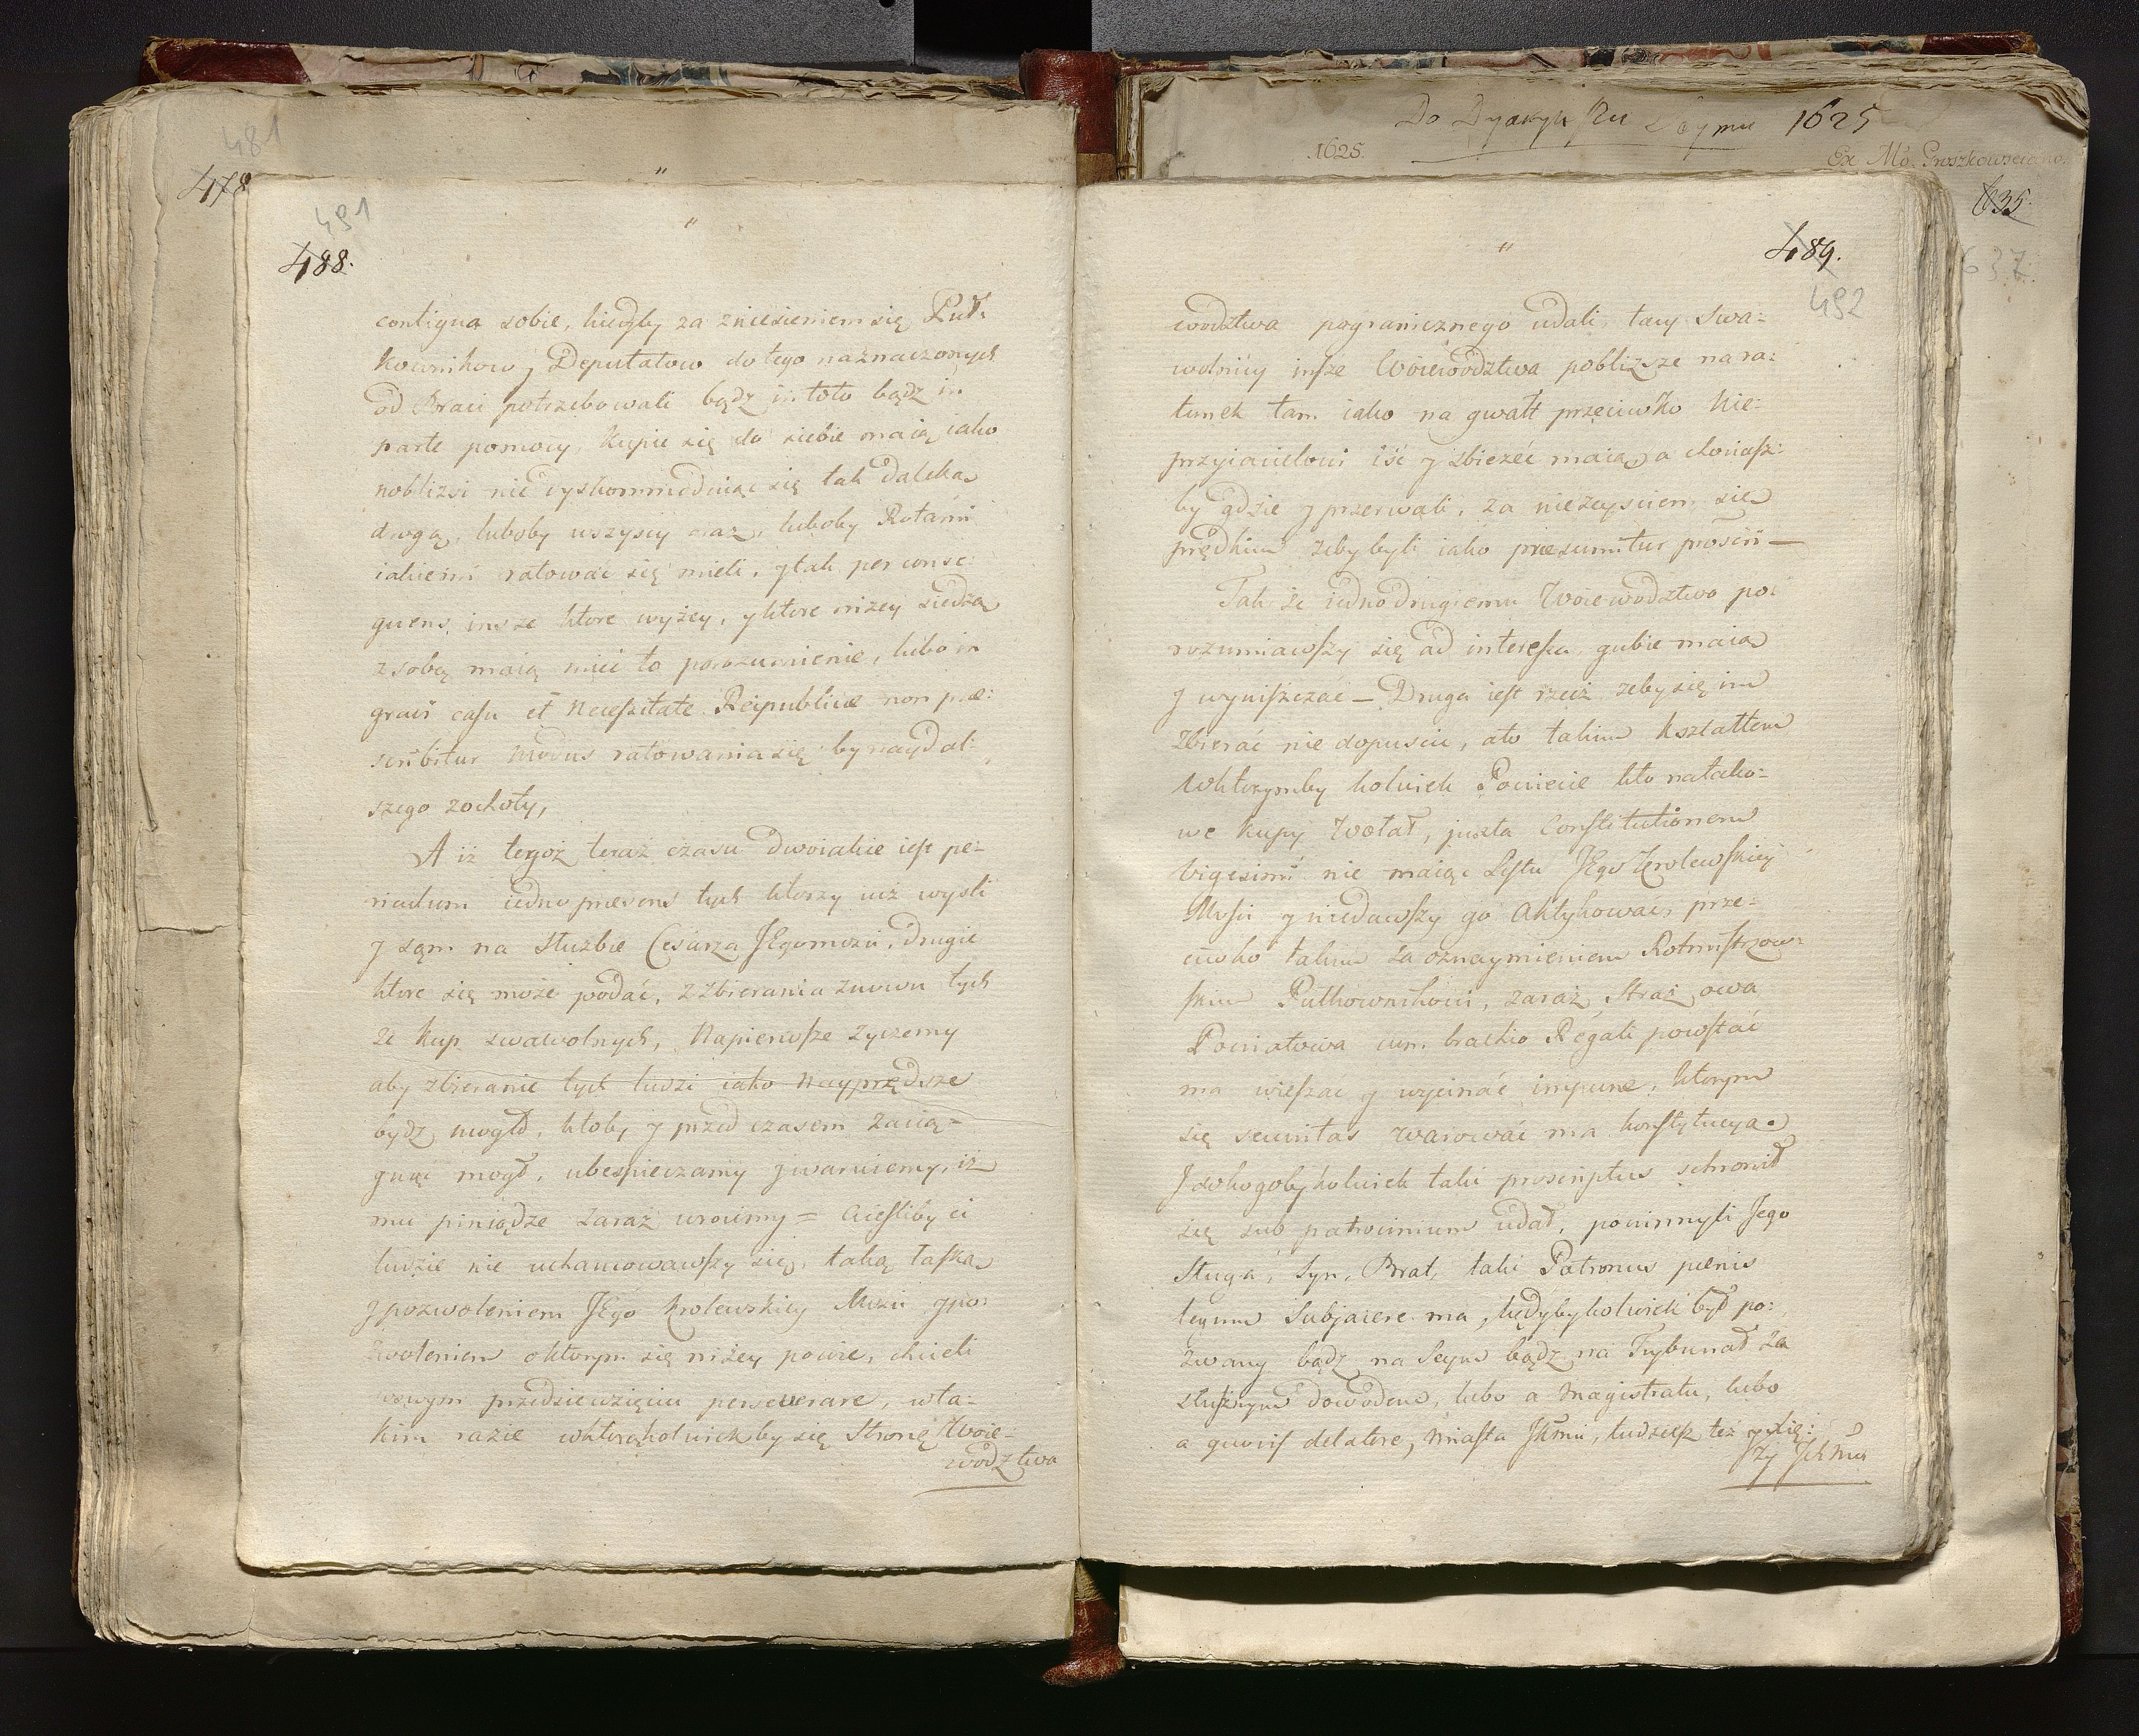 481
478
"
491
488.
"
contigua sobie, kiedyby za zniesieniem się Puł:
kownikow y Deputatow do tego naznaczonych
od Braci potrzebowali bądz in toto bądz in
parte pomocy, kupić się do siebie maią iako
nobliżsi nie dyskommoduiąc się tak daleką
drogą, luboby wszyscy raz, luboby Rotami
iakiemi ratować się mieli, y tak per conse:
quens insze ktore wyżey, y ktore niżey siedzą
z sobą maią mieć to porozumienie, lubo in
gravi casu et Necessitate Reipublicae non prae:
scribitur modus ratowania się by nayd al:
szego zochoty,
A iż tegoż teraz czasu dwoiakie iest pe-
riculum iedno praesens tych ktorzy iuż wyśli
y sąm na służbie Cesarza JEgomości, drugie
ktore się może podać, z zbierania znowu tych
że kup swawolnych, Napierwsze życzemy
aby zbieranie tych ludzi iako Nayprędsze
bydz mogło, ktoby y przed czasem zacią-
gnąć mogł, ubespieczamy y waruiemy, iż
mu piniądze zaraz wrocimy = Aiesliby ci
ludzie nie uchamowawszy się, taką łaską
y pozwoleniem JEgo Krolewskiey Mości y po:
zwoleniem o ktorym się niżey powie, chcieli
wswym przedsiewzięciu perseverare, wta:
kim razie wktorąkolwiekby się Stronę Woie-
wodztwa
Do Dyaryuszu Seymu 1625
1625.
Ex Mo. Groszkowsciano.
635.
637.
"
489.
492
wodztwa pogranicznego udali, tacy Swa-
wolnicy insze Woiewodztwa pobliższe na ra:
tunek tam iako na gwałt przeciwko Nie:
przyiacielowi iść y zbieżeć maią, a choćiasz:
by gdzie y przerwali, za nieżeysciem się
prędkim żeby byli iako praesumitur proscri —
Tak że iedno drugiemu Woiewodztwo po:
rozumiawszy się ad interesa gubić maią
y wyniszczać — Druga iest rzecz żeby się im
Zbierać nie dopuscić, ato takim kształtem
Wktorymby kolwiek Powiecie kto natako-
we kupy Wołał, juxta Constitutionem
Vigesimi nie maiąc Listu JEgo Krolewskiey
Mości y niedawszy go Aktykować, prze-
ciwko takim za oznaymieniem Rotmistrzow-
skim Pułkownikowi, zaraz Straż owa
Powiatowa cum brachio Regali powstać
ma wieszać y wycinać impune, ktorym
się securitas Warować ma konstytucya.
J dokogobykolwiek taki proscriptus schronił
się sub patrocinium udał, powinnyli Jego
Sługa, Syn, Brat, taki Patronus paenis
legum Subjacere ma, kędybykolwiek był po:
zwany bądz na Seym bądz na Trybunał za
słusznym dowodem, lubo a Magistratu, lubo
a quovis delatore, Miasta JKmci, tudziesz też y
szy JKMci